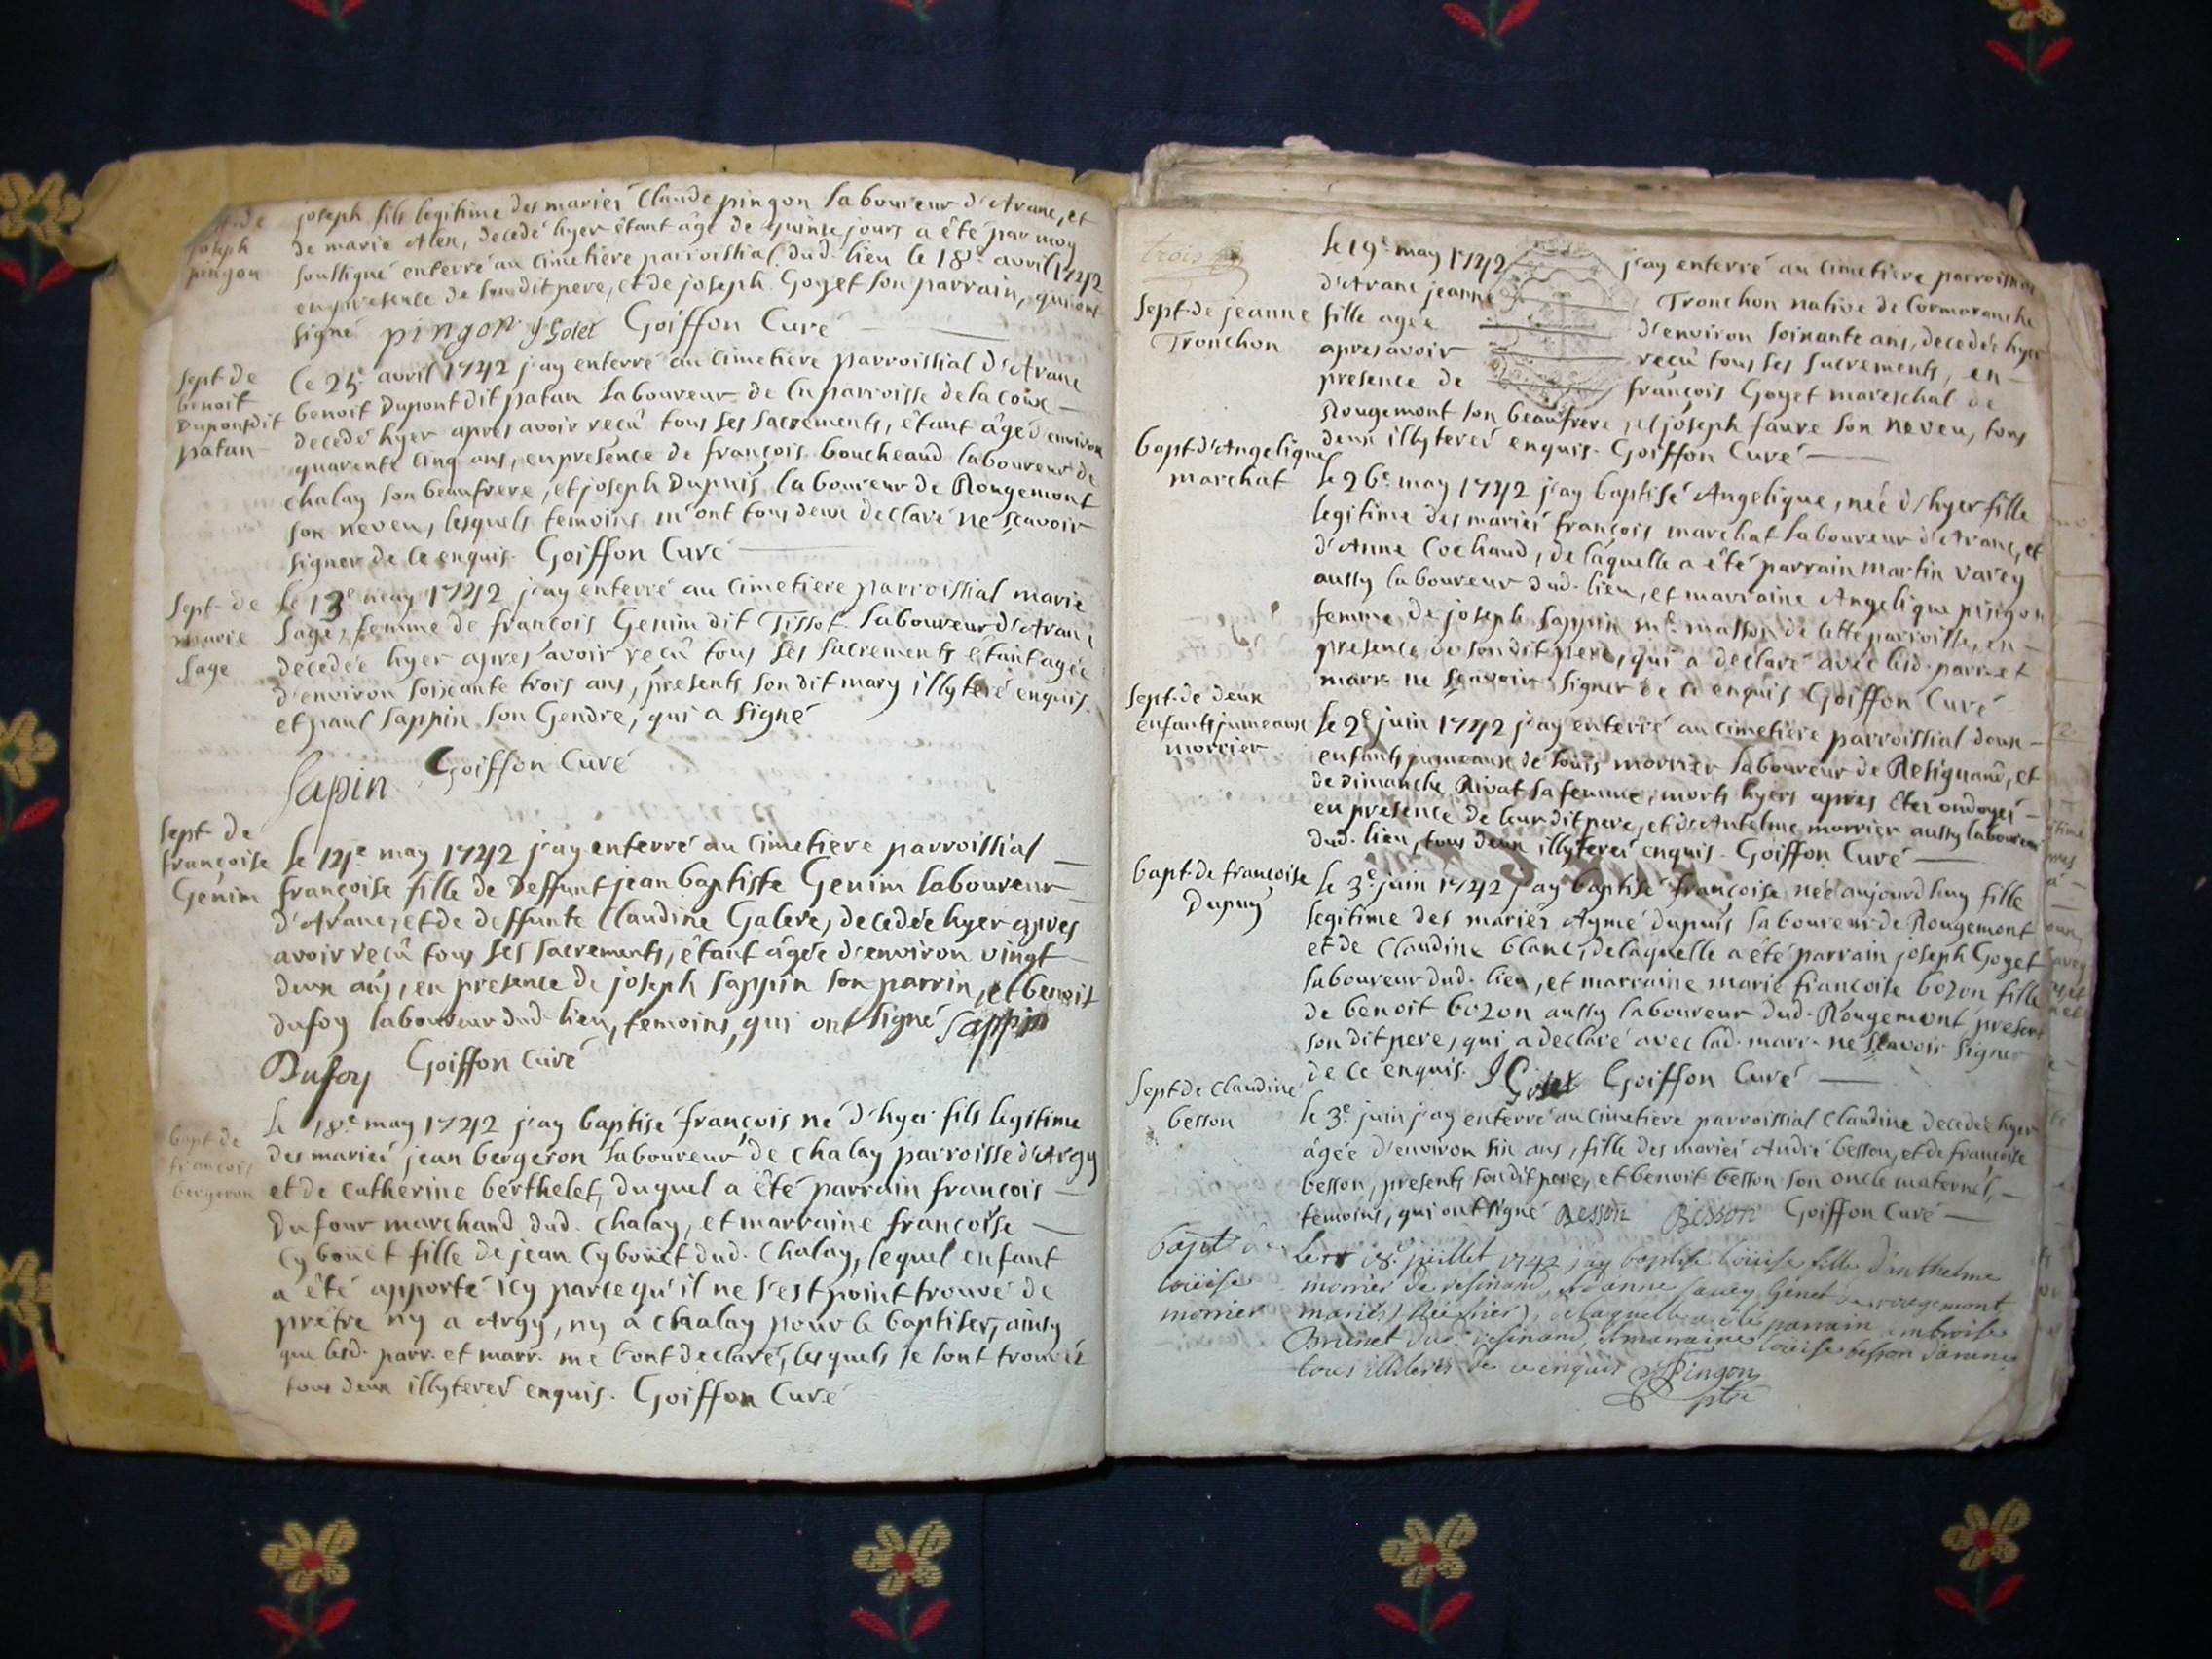 sept. de
joseph
pingon
joseph fils legitime des mariés Claude pingon laboureur d'Aranc, et
de marie Alen, decedé hyer étant âgé de quinze jours a été par moy
soussigné enterré au cimetière parroissial dud. lieu le 18e avril 1742
en presence de son dit pere, et de joseph Goyet son parrain, qui ont
signé pingon J Golet Goiffon Curé
sept. de
benoit
Dupont dit
patan
Le 25e avril 1742 j'ay enterré au cimetière parroissial d'Aranc
benoit Dupont dit patan laboureur de la parroisse de la
decedé hyer apres avoir reçû tous ses sacrements, étant âgé d'environ
quarente cinq ans, en presence de françois boucheaud laboureur de
chalay son beaufrere, et joseph Dupuis laboureur de Rougemont
son neveu, lesquels temoins m'ont tous deux declaré ne sçavoir
signer de ce enquis. Goiffon Curé
Sept. de
marie
Sage
Le 13e may 1742 j'ay enterré au cimetiere parroissial marie
Sage, femme de françois Genim dit Tissot laboureur d'Aranc
decedée hyer apres avoir reçû tous ses sacrements étant agée
d'environ soixante trois ans, presents son dit mary illyteré enquis.
et paul sappin son Gendre, qui a signé
Sapin Goiffon Curé
sept. de
françoise
Genim
Le 14e may 1742 j'ay enterré au cimetiere parroissial
françoise fille de deffunt jean baptiste Genim laboureur
d'Aranc, et de deffunte Claudine Galere, decedée hyer apres
avoir reçû tous ses sacrements, étant âgée d'environ vingt
deux ans, en presence de joseph sappin son parrin, et benoit
dufoy laboureur dud. lieu, temoins, qui ont signé Sappin
Dufoy Goiffon Curé
bapt. de
françois
bergeron
Le 18e may 1742 j'ay baptisé françois né d'hyer fils legitime
des mariés jean bergeron laboureur de chalay parroisse d'Argy
et de catherine berthelet, duquel a été parrain françois
Dufour marchand dud. chalay, et marraine françoise
Cyboüet fille de jean Cyboüet dud. chalay, lequel enfant
a été apporté icy parcequ'il ne s'est point trouvé de
prêtre ny a Argy, ny a chalay pour le baptiser, ainsy
que lesd. parr. et marr. me l'ont declaré, lesquels se sont trouvés
tous deux illyterés enquis. Goiffon Curé
trois
Sept. de jeanne
Tronchon
Le 19e may 1742 j'ay enterré au cimetiere parroissial
d'Aranc jeanne Tronchon native de Cormaranche
fille agée d'environ soixante ans, decedée hyer
apres avoir reçû tous ses sacrements, en
presence de françois Goyet mareschal de
Rougemont son beaufrere, et joseph faure son neveu, tous
deux illyterés enquis. Goiffon Curé
bapt. d'Angelique
marchat
Le 26e may 1742 j'ay baptisé Angelique, née d'hyer fille
legitime des mariés françois marchat laboureur d'Aranc, et
d'Anne Cochaud, de laquelle a été parrain martin varey
aussy laboureur dud. lieu, et marraine Angelique pingon
femme de joseph sappin me. masson de cette parroisse, en
presence de son dit pere, qui a declaré avec lesd. parr. et
marr. ne sçavoir signer de ce enquis Goiffon Curé
Sept. de deux
enfants jumeaux
morrier
Le 2e juin 1742 j'ay enterré au cimetière parroissial deux
enfants jumeaux de louis morrier laboureur de Resignand, et
de dimanche Rivat sa femme, morts hyers apres être ondoyés
en presence de leur dit pere, et d'Antelme morrier aussy laboureur
dud. lieu, tous deux illyterés enquis. Goiffon Curé
bapt. de françoise
Dupuy
Le 3e juin 1742 j'ay baptisé françoise née aujourd'huy fille
legitime des mariés Aymé dupuis laboureur de Rougemont
et de Claudine blanc, de laquelle a été parrain joseph Goyet
laboureur dud. lieu, et marraine marie françoise bozon fille
de benoit bozon aussy laboureur dud. Rougemont present
son dit pere, qui a declaré avec lad. marr. ne sçavoir signer
de ce enquis. J Golet Goiffon Curé
Sept. de Claudine
besson
Le 3e juin j'ay enterré au cimetiere parroissial Claudine decedée hyer
âgée d'environ six ans, fille des mariés André besson, et de françoise
besson, presents son dit pere, et benoit besson son oncle maternel,
temoins, qui ont signé Besson Besson Goiffon Curé
bapt de
loüise
morrier
Le 18e juillet 1742 jay baptisé loüise fille d'anthelme
morrier de resinand, et danne savey Genet de rougemont
mariés, Née hier, de laquelle a été parrain ambroise
Brunet dud. resinand, et marraine loüise besson d'aranc
tous illiterés de ce enquis Pingon
ptre